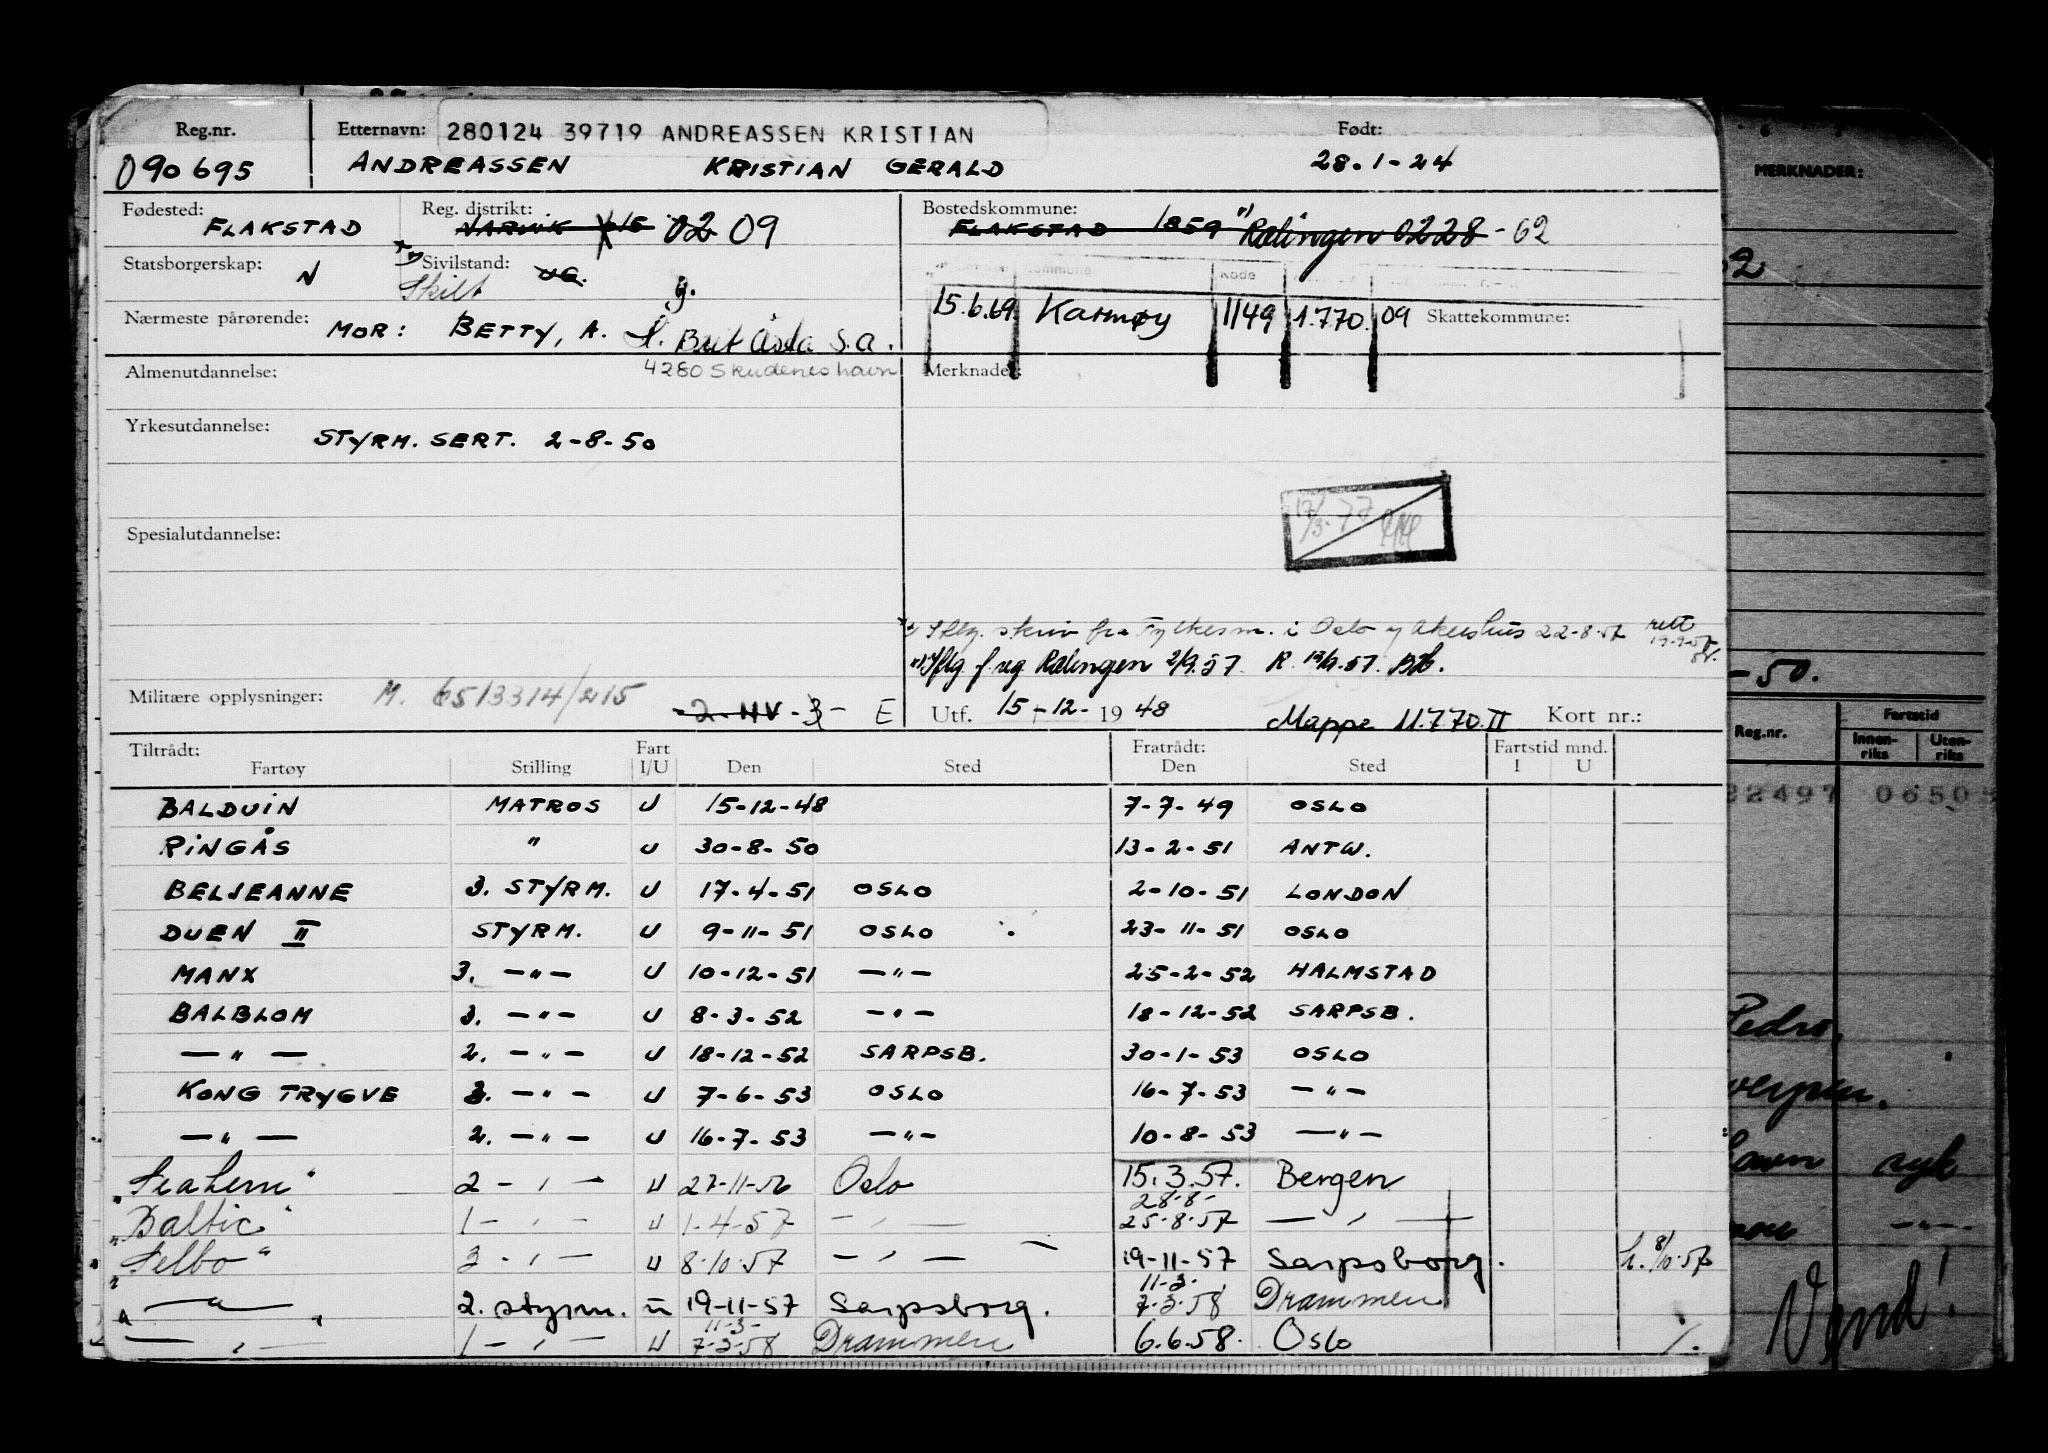 Reg.nr. Etternavn: 280124 39719 ANDREASSEN KRISTIAN Født:
090695 ANDREASSEN KRISTIAN GERALD 28.1-24
Fødested: FLAKSTAD Reg. distrikt: NARVIK 02 09 Bostedskommune: FLAKSTAD 1859 Rælingen 0228 - 62
Statsborgerskap: N Sivilstand: UG. Skilt g.
Kommune Kode
15.6.69. Karmøy 1149 1.770. 09 Skattekommune:
Nærmeste pårørende: MOR: BETTY, A. Brit Åsta S.A.
4280 Skudeneshavn
Almenutdannelse: Merknader:
Yrkesutdannelse: STYRM. SERT. 2-8-50
Spesialutdannelse:
Iflg. skriv fra Fylkesm. i Oslo og Akershus 22-8-57 rett
19-9-57
Iflg f.reg Rælingen 2/9.57. R.
Militære opplysninger: M. 6513314/215 2-HV-3- E Utf. 15-12- 1948 Mappe 11.770.II Kort nr.:
Tiltrådt: Fart Fratrådt: Fartstid mnd.
Fartøy Stilling I/U Den Sted Den Sted I U
BALDUIN MATROS U 15-12-48 7-7-49 OSLO
RINGÅS " U 30-8-50 13-2-51 ANTW.
BELJEANNE 3. STYRM. U 17-4-51 OSLO 2-10-51 LONDON
DUEN II STYRM. U 9-11-51 OSLO 23-11-51 OSLO
MANX 3. —"— U 10-12-51 —"— 25-2-52 HALMSTAD
BALBLOM 3. —"— U 8-3-52 —"— 18-12-52 SARPSB.
—"— 2. —"— U 18-12-52 SARPSB. 30-1-53 OSLO
KONG TRYGVE 3. —"— U 7-6-53 OSLO 16-7-53 —"—
—"— 2. —"— U 16-7-53 —"— 10-8-53 —"—
2 —"— U 27-11-56 Oslo 15.3.57. Bergen
28-8-
"Baltic" 1 —"— U 1-4-57 —"— 25-8-57 —"—
"Selbo" 3 —"— U 8-10-57 —"— 19-11-57 Sarpsborg. 8/10-57
11-3-
—"— 2. styrm. U 19-11-57 Sarpsborg. 7-3-58 Drammen
11-3-
—"— 1 —"— U 7-3-58 Drammen 6.6.58. Oslo
MERKNADER:
-50.
Reg.nr. Fartstid
Innen-riks Uten-riks
32497 06505
Pedro.
syk
—"—
Vend!